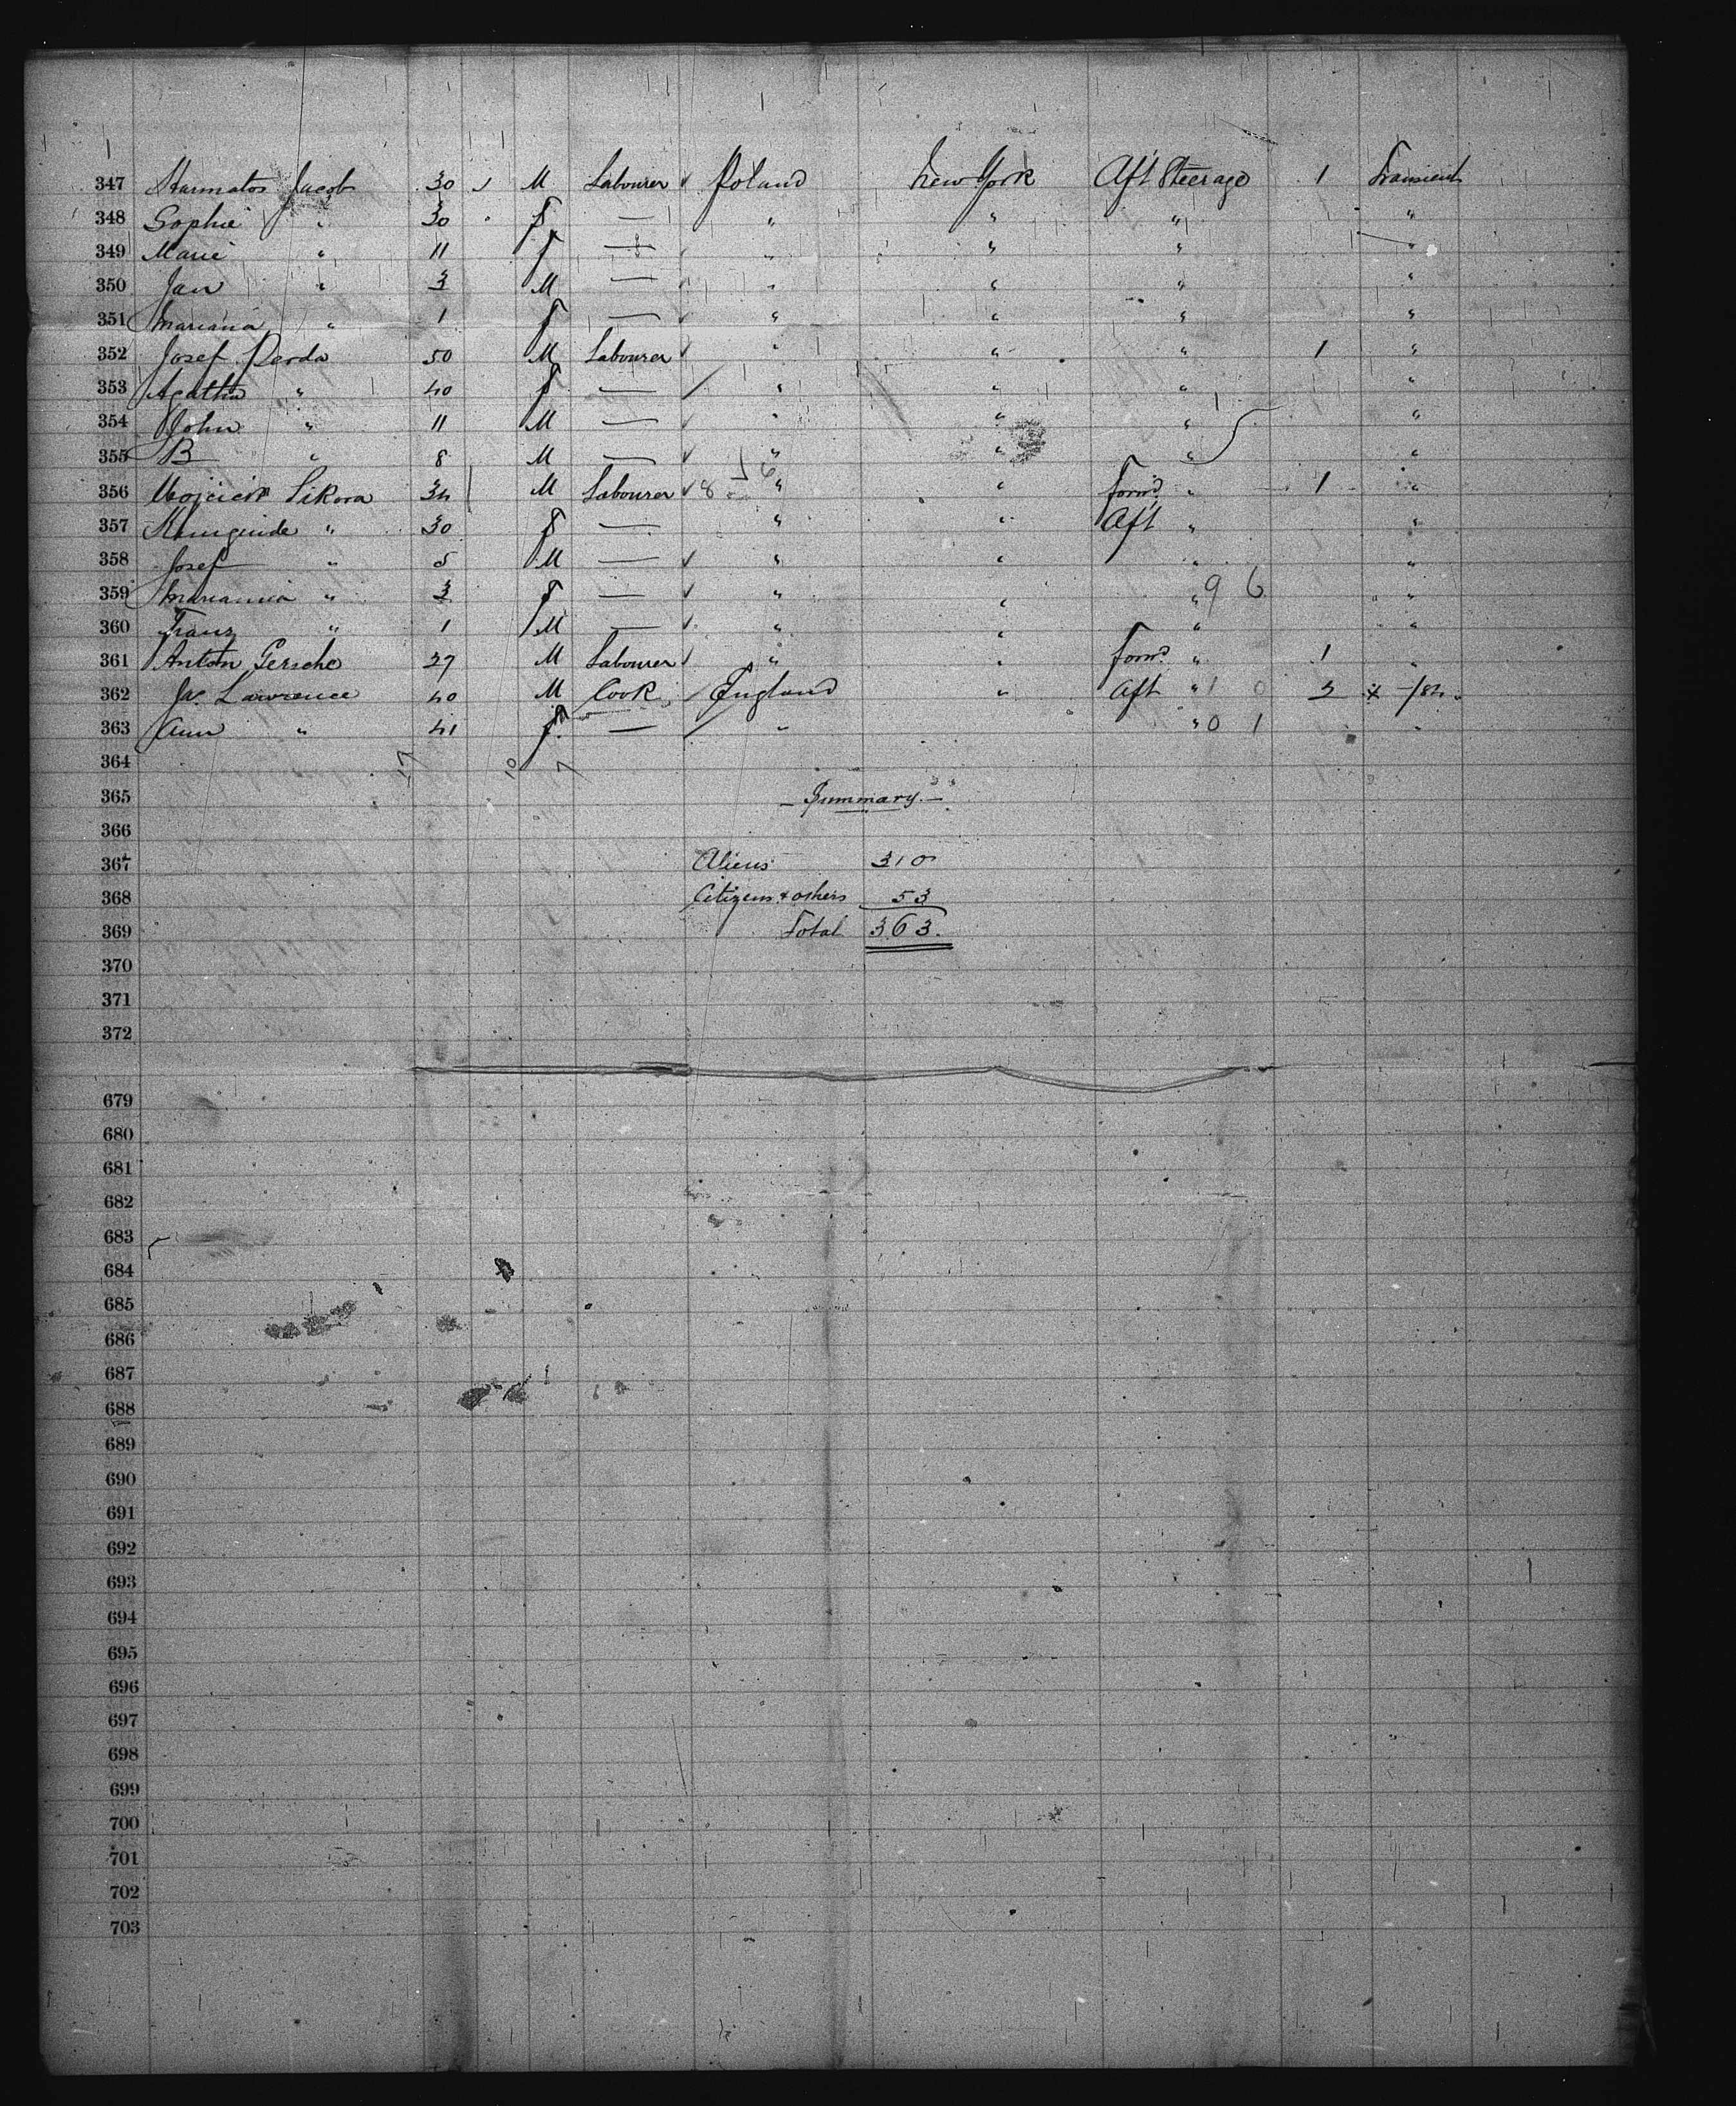 347 Harmatos Jacob 30 ✓ M Labourer ✓ Poland New York Aft Steerage 1 Transient
348 Sophie " 30 " F — " " " "
349 Marie " 11 F — ✓ " " " "
350 Jan " 3 M — ✓ " " " "
351 Mariana " 1 F — ✓ " " " "
352 Josef Perda 50 M Labourer ✓ " " " 1 "
353 Agatha " 40 F — / " " " "
354 John " 11 M — ✓ " " " "
355 B " 8 M — ✓ " " " "
356 Sikora 34 M Labourer ✓ 8 6 " " Forwd. " 1 "
357 " 30 F — " " Aft " "
358 Josef " 5 M — ✓ " " " "
359 Marianna " 3 F — ✓ " " " 9 6 "
360 Franz " 1 M — ✓ " " " "
361 Anton Gersche 27 M Labourer ✓ " " Forwd. " 1 "
362 Jas. Lawrence 40 M Cook / England " Aft " 1 0 2
363 Ann " 41 F. — / " " 0 1 "
364 17 10 7
365 — Summary. —
366
367 Aliens 310
368 Citizens & others 53
369 Total 363.
370
371
372
679
680
681
682
683
684
685
686
687
688
689
690
691
692
693
694
695
696
697
698
699
700
701
702
703